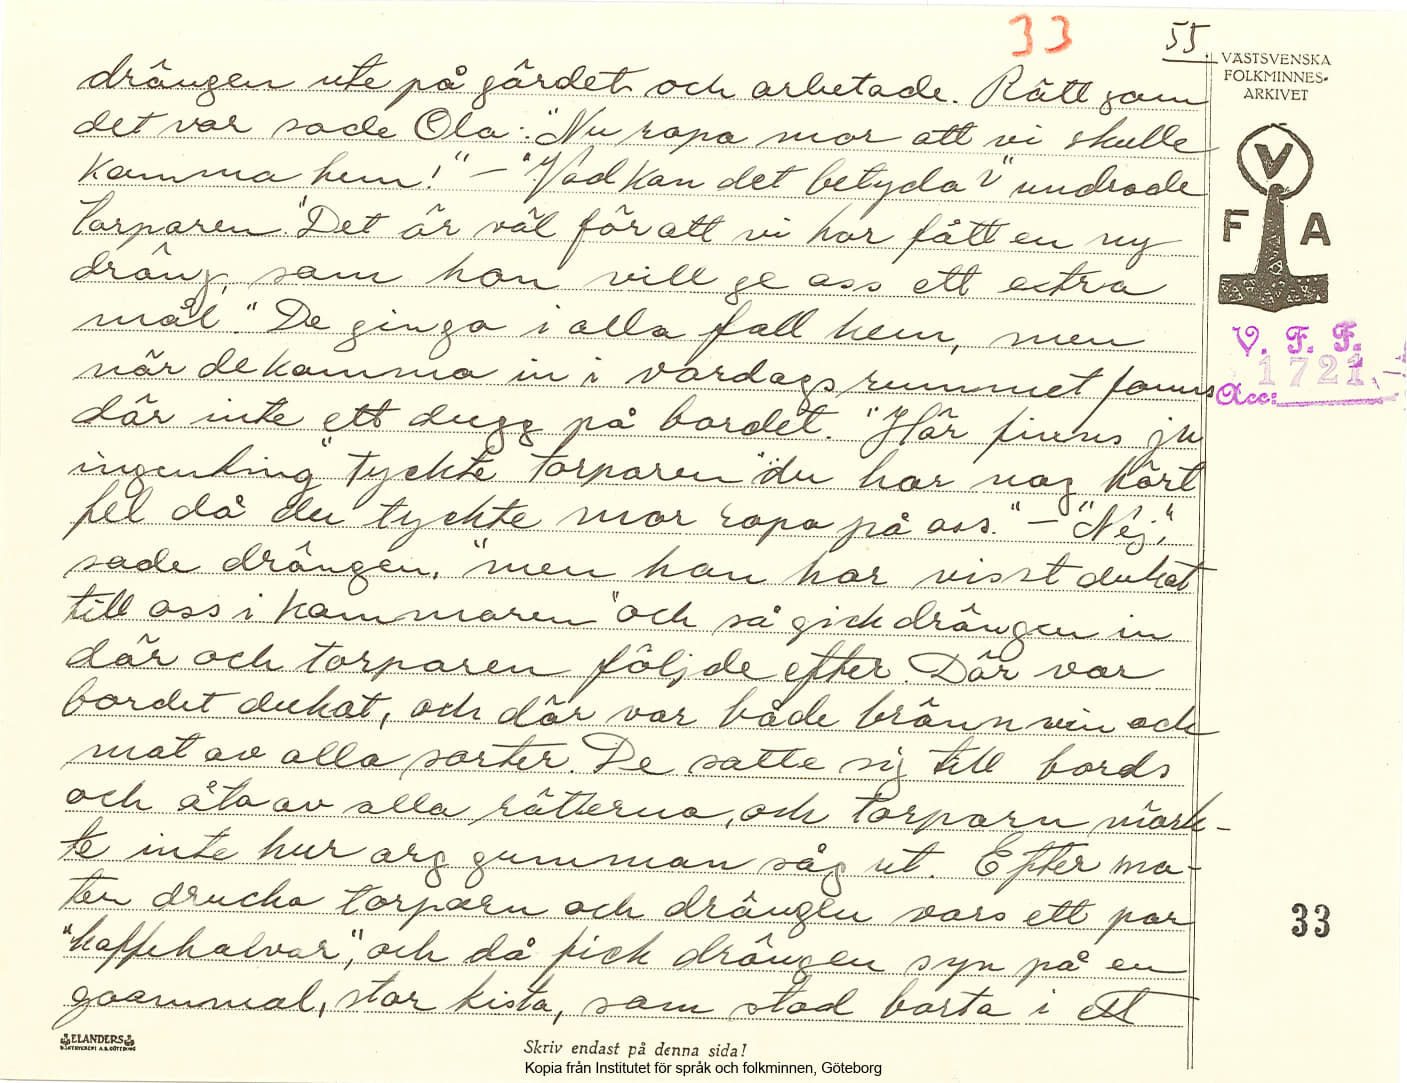 33
55
VÄSTSVENSKA
FOLKMINNES-
ARKIVET
V
F A
V. F. F.
1721
Acc:
drängen ute på gärdet och arbetade. Rätt som
det var sade Ola: "Nu ropa mor att vi skulle
komma hem!" – "Vad kan det betyda?" undrade
torparen. "Det är väl för att vi har fått en ny
dräng, som hon vill ge oss ett extra
mål." De gingo i alla fall hem, men
när de kommo in i vardagsrummet fanns
där inte ett dugg på bordet. "Här finns ju
ingenting" tyckte torparen "du har nog hört
fel då du tyckte mor ropa på oss." – "Nej,"
sade drängen, "men hon har visst dukat
till oss i kammaren" och så gick drängen in
där och torparen följde efter. Där var
bordet dukat, och där var både brännvin och
mat av alla sorter. De satte sig till bords
och åto av alla rätterna, och torparn märk-
te inte hur arg gumman såg ut. Efter ma-
ten drucko torparn och drängen vars ett par
"kaffehalvar", och då fick drängen syn på en
gammal, stor kista, som stod borta i ett
33
ELANDERS
Skriv endast på denna sida!
Kopia från Institutet för språk och folkminnen, Göteborg